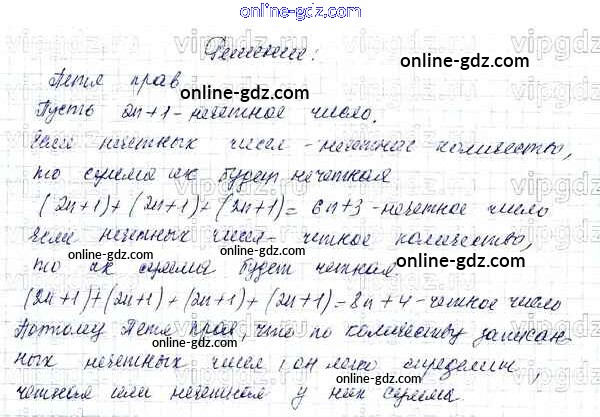 online-gdz.com
Решение:
Петя прав
online-gdz.com
Пусть 2n+1 - нечетное число.
Если нечетных чисел - нечетное количество,
то сумма их будет нечетная
online-gdz.com
(2n+1)+(2n+1)+(2n+1)=6n+3 - нечетное число
Если нечетных чисел - четное количество,
online-gdz.com online-gdz.com
то их сумма будет четная.
(2n+1)+(2n+1)+(2n+1)+(2n+1)=8n+4 - четное число
Поэтому Петя прав, что по количеству записан-
ных нечетных чисел, он легко определит,
online-gdz.com online-gdz.com
четная или нечетная у них сумма.